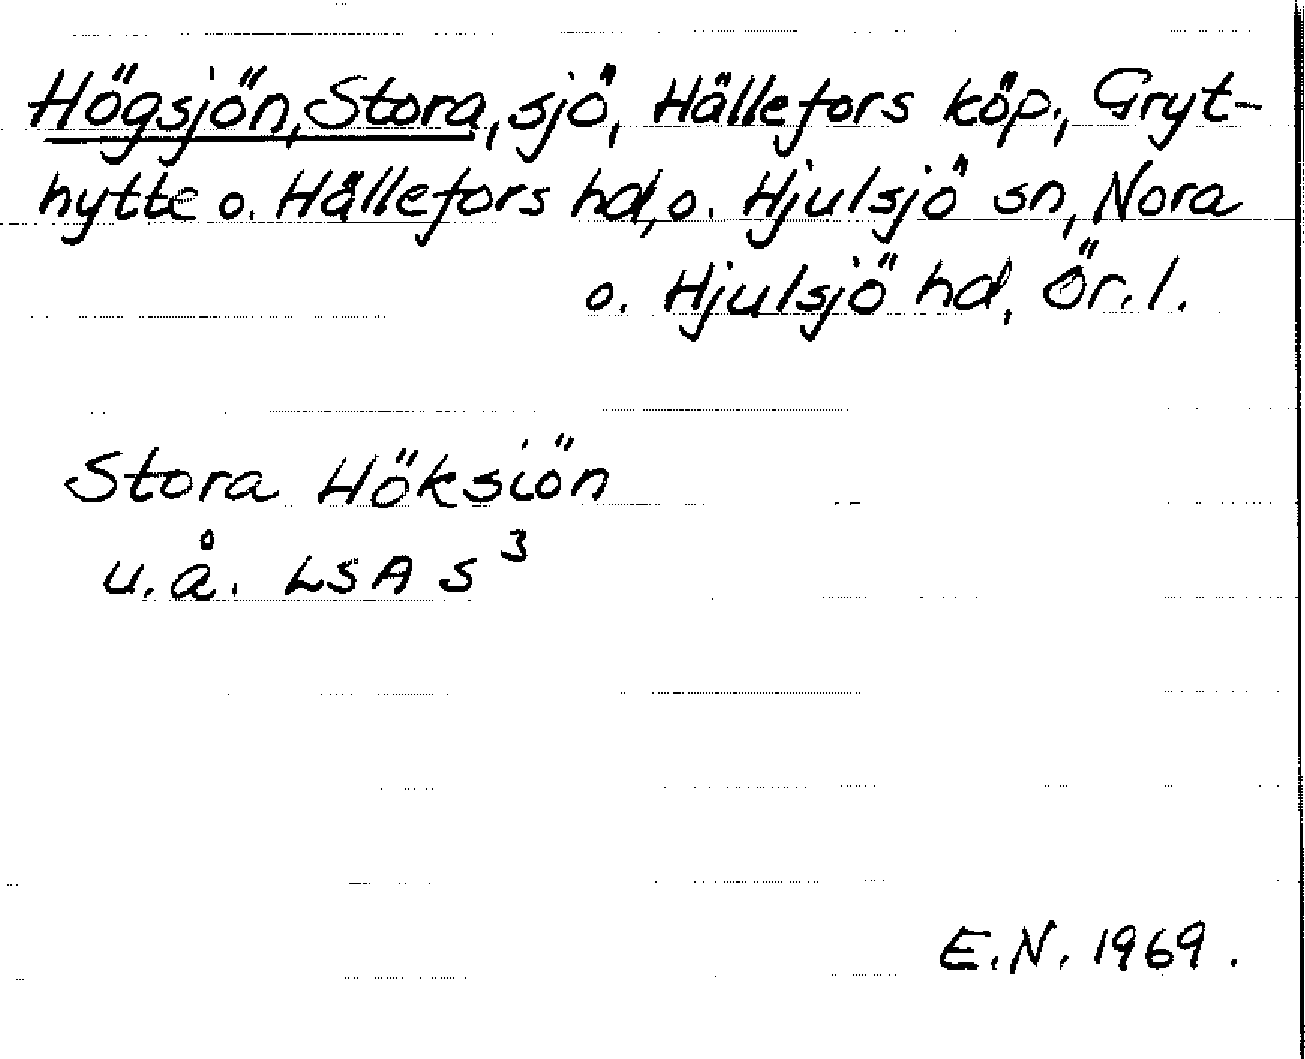 Högsjön, Stora, sjö, Hällefors köp., Gryt-
hytte o. Hällefors hd, o. Hjulsjö sn, Nora
o. Hjulsjö hd, Ör. l.
Stora Höksiön
u.å. LSA S³
E.N. 1969.